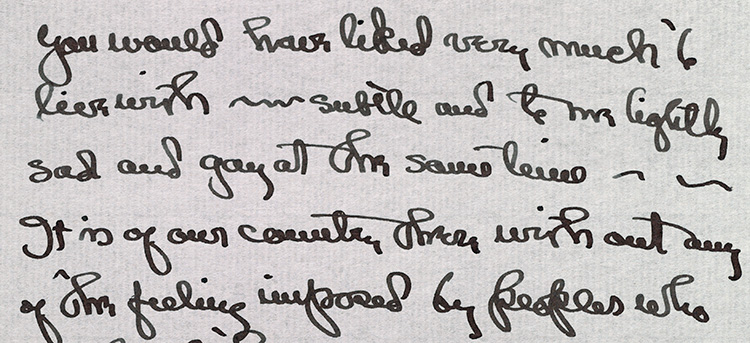 you would have liked very much to
live with — subtle and to me lightly
sad and gay at the same time —
It is of our country there without any
of the feeling imposed by peoples who